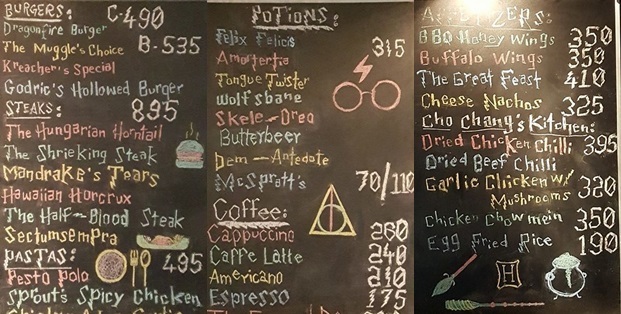 BURGERS: C-490
Dragonfire Burger
The Muggle's Choice B-535
Kreacher's Special
Godric's Hollowed Burger
STEAKS: 895
The Hungarian Horntail
The Shrieking Steak
Mandrake's Tears
Hawaiian Horcrux
The Half-Blood Steak
Sectumsempra
PASTAS: 495
Pesto Polo
Sprout's Spicy Chicken
POTIONS:
Felix Felicis
Amortertia 315
Tongue Twister
Wolfsbane
Skele-Dro
Butterbeer
Dem-Antedote
McSpratt's 70/110
Coffee:
Cappuccino 260
Caffe Latte 240
Americano 210
Espresso 175
APPETIZERS:
BBQ Honey Wings 350
Buffalo Wings 350
The Great Feast 410
Cheese Nachos 325
Cho Chang's Kitchen:
Dried Chicken Chilli 395
Dried Beef Chilli
Garlic Chicken W/ 320
Mushrooms
Chicken Chowmein 350
Egg Fried Rice 190
H